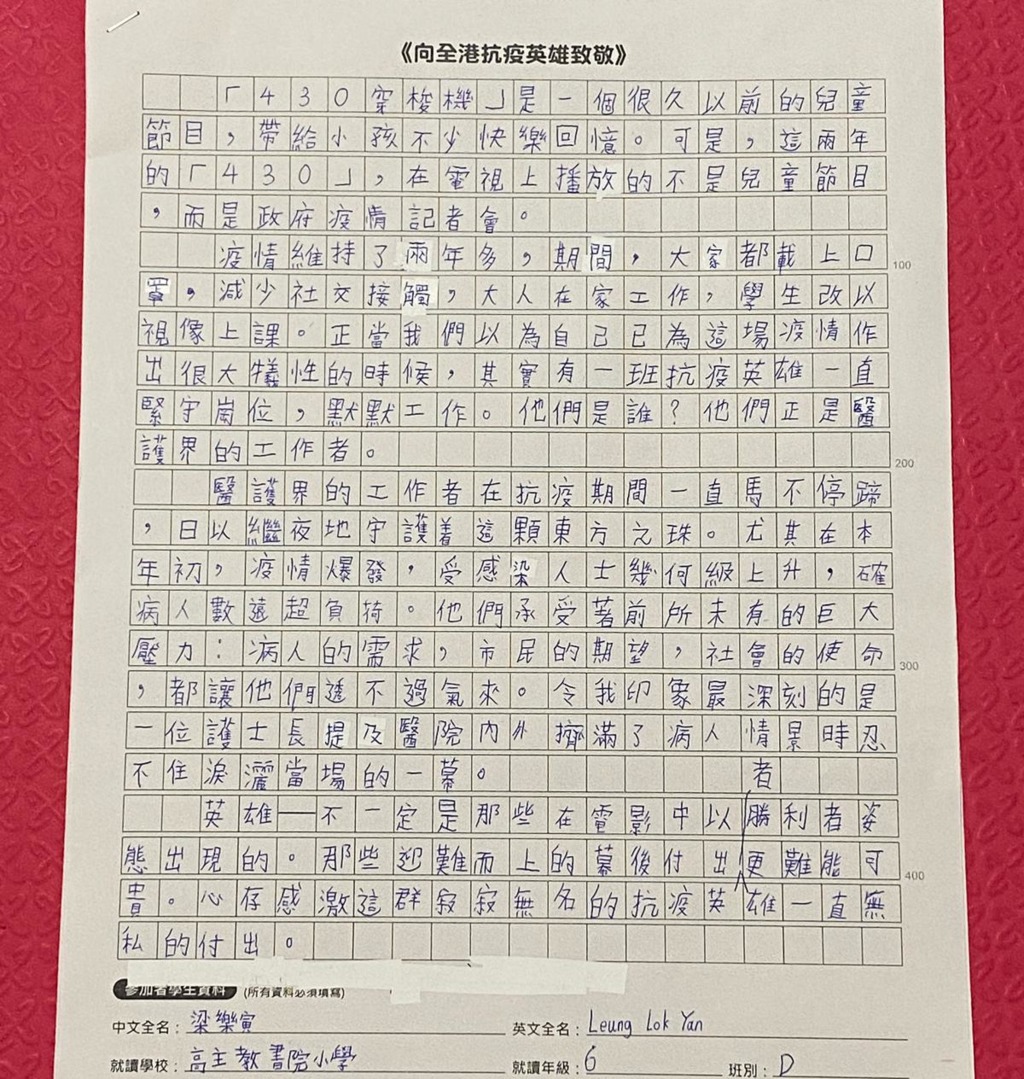 《向全港抗疫英雄致敬》
「430穿梭機」是一個很久以前的兒童
節目,帶給小孩不少快樂回憶。可是,這兩年
的「430」,在電視上播放的不是兒童節目
,而是政府疫情記者會。
疫情維持了兩年多,期間,大家都載上口
100
罩,減少社交接觸,大人在家工作,學生改以
視像上課。正當我們以為自己已為這場疫情作
出很大犠性的時候,其實有一班抗疫英雄一直
緊守崗位,默默工作。他們是誰?他們正是醫
護界的工作者。
200
醫護界的工作者在抗疫期間一直馬不停蹄
,日以繼夜地守護着這顆東方之珠。尤其在本
年初,疫情爆發,受感染人士幾何級上升,確
病人數遠超負荷。他們承受著前所未有的巨大
壓力:病人的需求,市民的期望,社會的使命
300
,都讓他們透不過氣來。令我印象最深刻的是
一位護士長提及醫院內外擠滿了病人情景時忍
不住淚灑當場的一幕。
者
英雄——不一定是那些在電影中以勝利者姿
態出現的。那些迎難而上的幕後付出更難能可
400
貴。心存感激這群寂寂無名的抗疫英雄一直無
私的付出。
參加者學生資料 (所有資料必須填寫)
中文全名: 梁樂寅 英文全名: Leung Lok Yan
就讀學校: 高主教書院小學 就讀年級: 6 班別: D